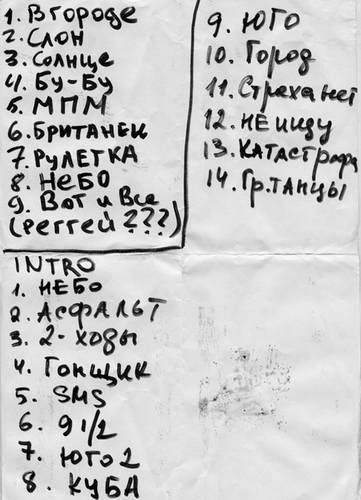 1. В городе
2. СЛОН
3. Солнце
4. Бу-Бу
5. МПМ
6. БРИТАНЕЦ
7. РУЛЕТКА
8. НЕБО
9. Вот и Все
(Реггей???)
INTRO
1. НЕБО
2. АСФАЛЬТ
3. 2-ходы
4. Гонщик
5. SMS
6. 9 1/2
7. ЮГО 2
8. КУБА
9. ЮГО
10. Город
11. Страха нет
12. НЕ ИЩУ
13. КАТАСТРОФА
14. Гр.ТАНЦЫ